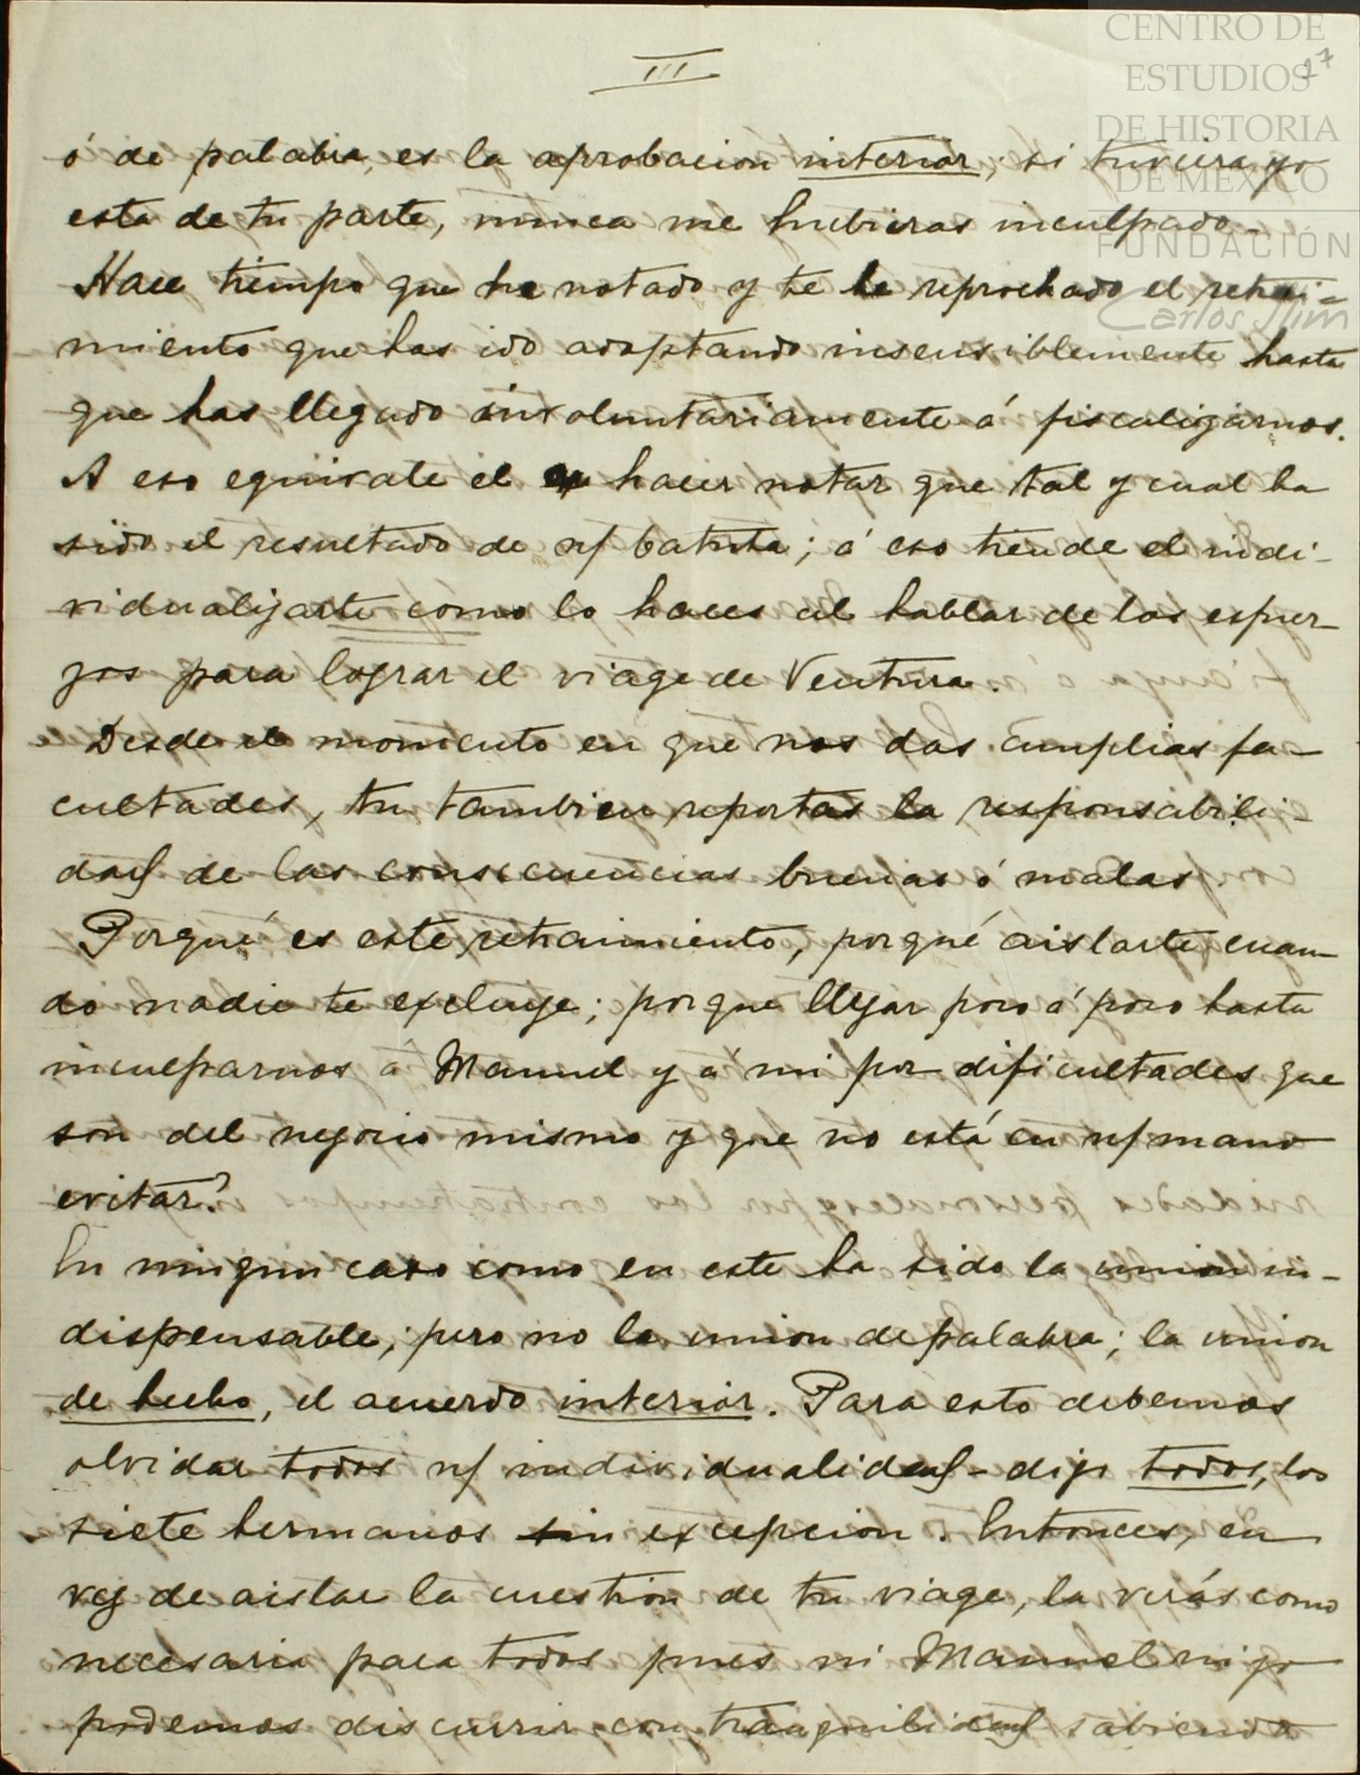 III
27
CENTRO DE
ESTUDIOS
DE HISTORIA
DE MÉXICO
FUNDACIÓN
Carlos Slim
ó de palabra, es la aprobacion interior; si tuviera yo
esta de tu parte, nunca me hubieras inculpado.-
Hace tiempo que he notado y te he reprochado el retrai-
miento que has ido adoptando insensiblemente hasta
que has llegado involuntariamente á fiscalizarnos.
A eso equivale el hacer notar que tal y cual ha
sido el resultado de n/ batuta; á eso tiende el indi-
vidualizarte como lo haces al hablar de los esfuer-
zos para lograr el viage de Ventura.
Desde el momento en que nos das amplias fa-
cultades, tu tambien reportas la responsabili-
dad de las consecuencias buenas ó malas.
Porqué es este retraimiento, porqué aislarte cuan-
do nadie te excluye; porque llegar poco á poco hasta
inculparnos á Manuel y á mi por dificultades que
son del negocio mismo y que no está en n/ mano
evitar?
En ningun caso como en este ha sido la union in-
dispensable; pero no la union de palabra; la union
de hecho, el acuerdo interior. Para esto debemos
olvidar todos n/ individualidad - digo todos, los
siete hermanos sin excepcion. Entonces, en
vez de aislar la cuestion de tu viage, la verás como
necesaria para todos pues ni Manuel ni yo
podemos discurrir con tranquilidad sabiendo